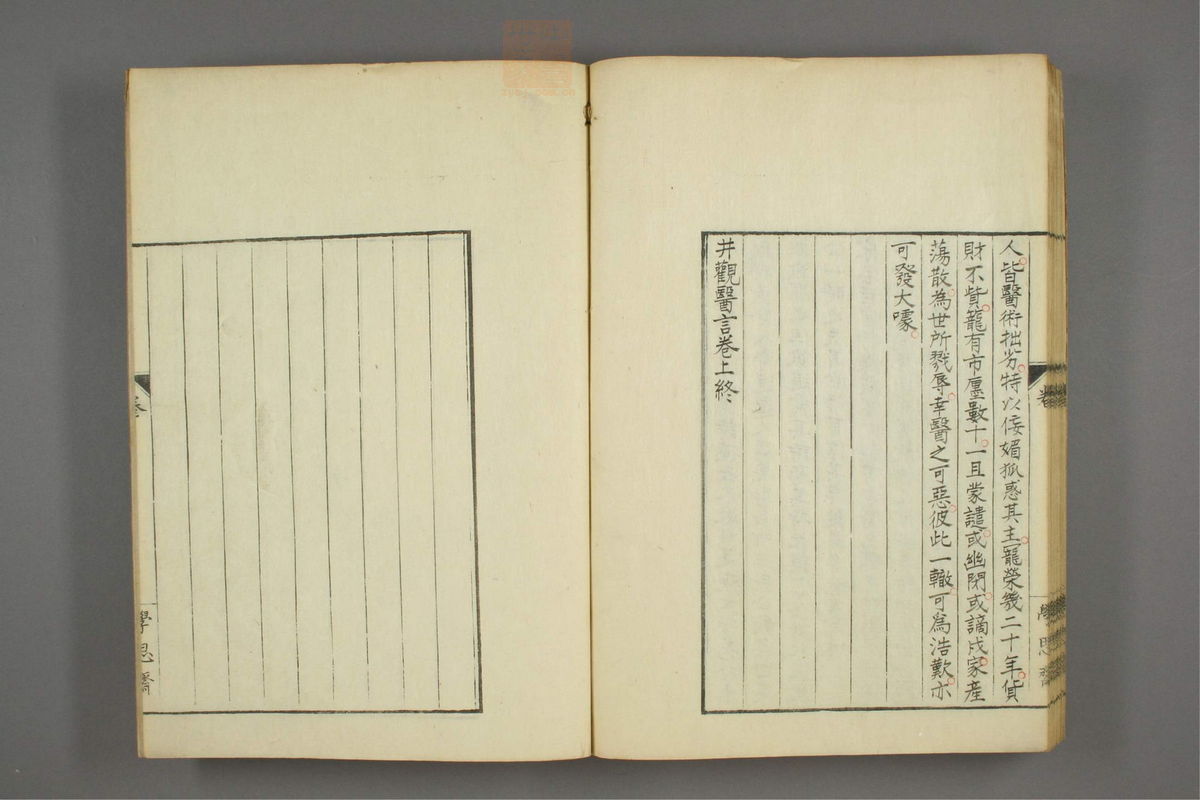 人皆醫術拙劣特以佞媚狐惑其主寵榮幾二十年貨
財不貲籠有市廛數十一旦蒙譴或幽閉或謫戍家產
蕩散為世所戮辱幸醫之可惡彼此一轍可為浩歎亦
可發大噱
井觀醫言卷上終
學思齋